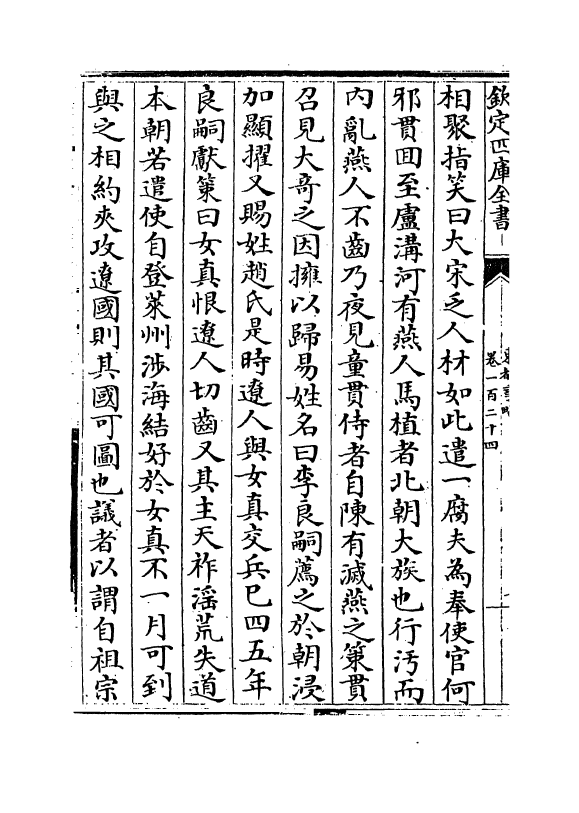 欽定四庫全書
卷一百二十四
相聚指笑曰大宋乏人材如此遣一腐夫為奉使官何
邪貫囬至盧溝河有燕人馬植者北朝大族也行汚而
内亂燕人不齒乃夜見童貫侍者自陳有滅燕之策貫
召見大竒之因擁以歸易姓名曰李良嗣薦之於朝浸
加顯擢又賜姓趙氏是時遼人與女真交兵已四五年
良嗣獻策曰女真恨遼人切齒又其主天祚滛荒失道
本朝若遣使自登萊州涉海結好於女真不一月可到
與之相約夾攻遼國則其國可圖也議者以謂自祖宗